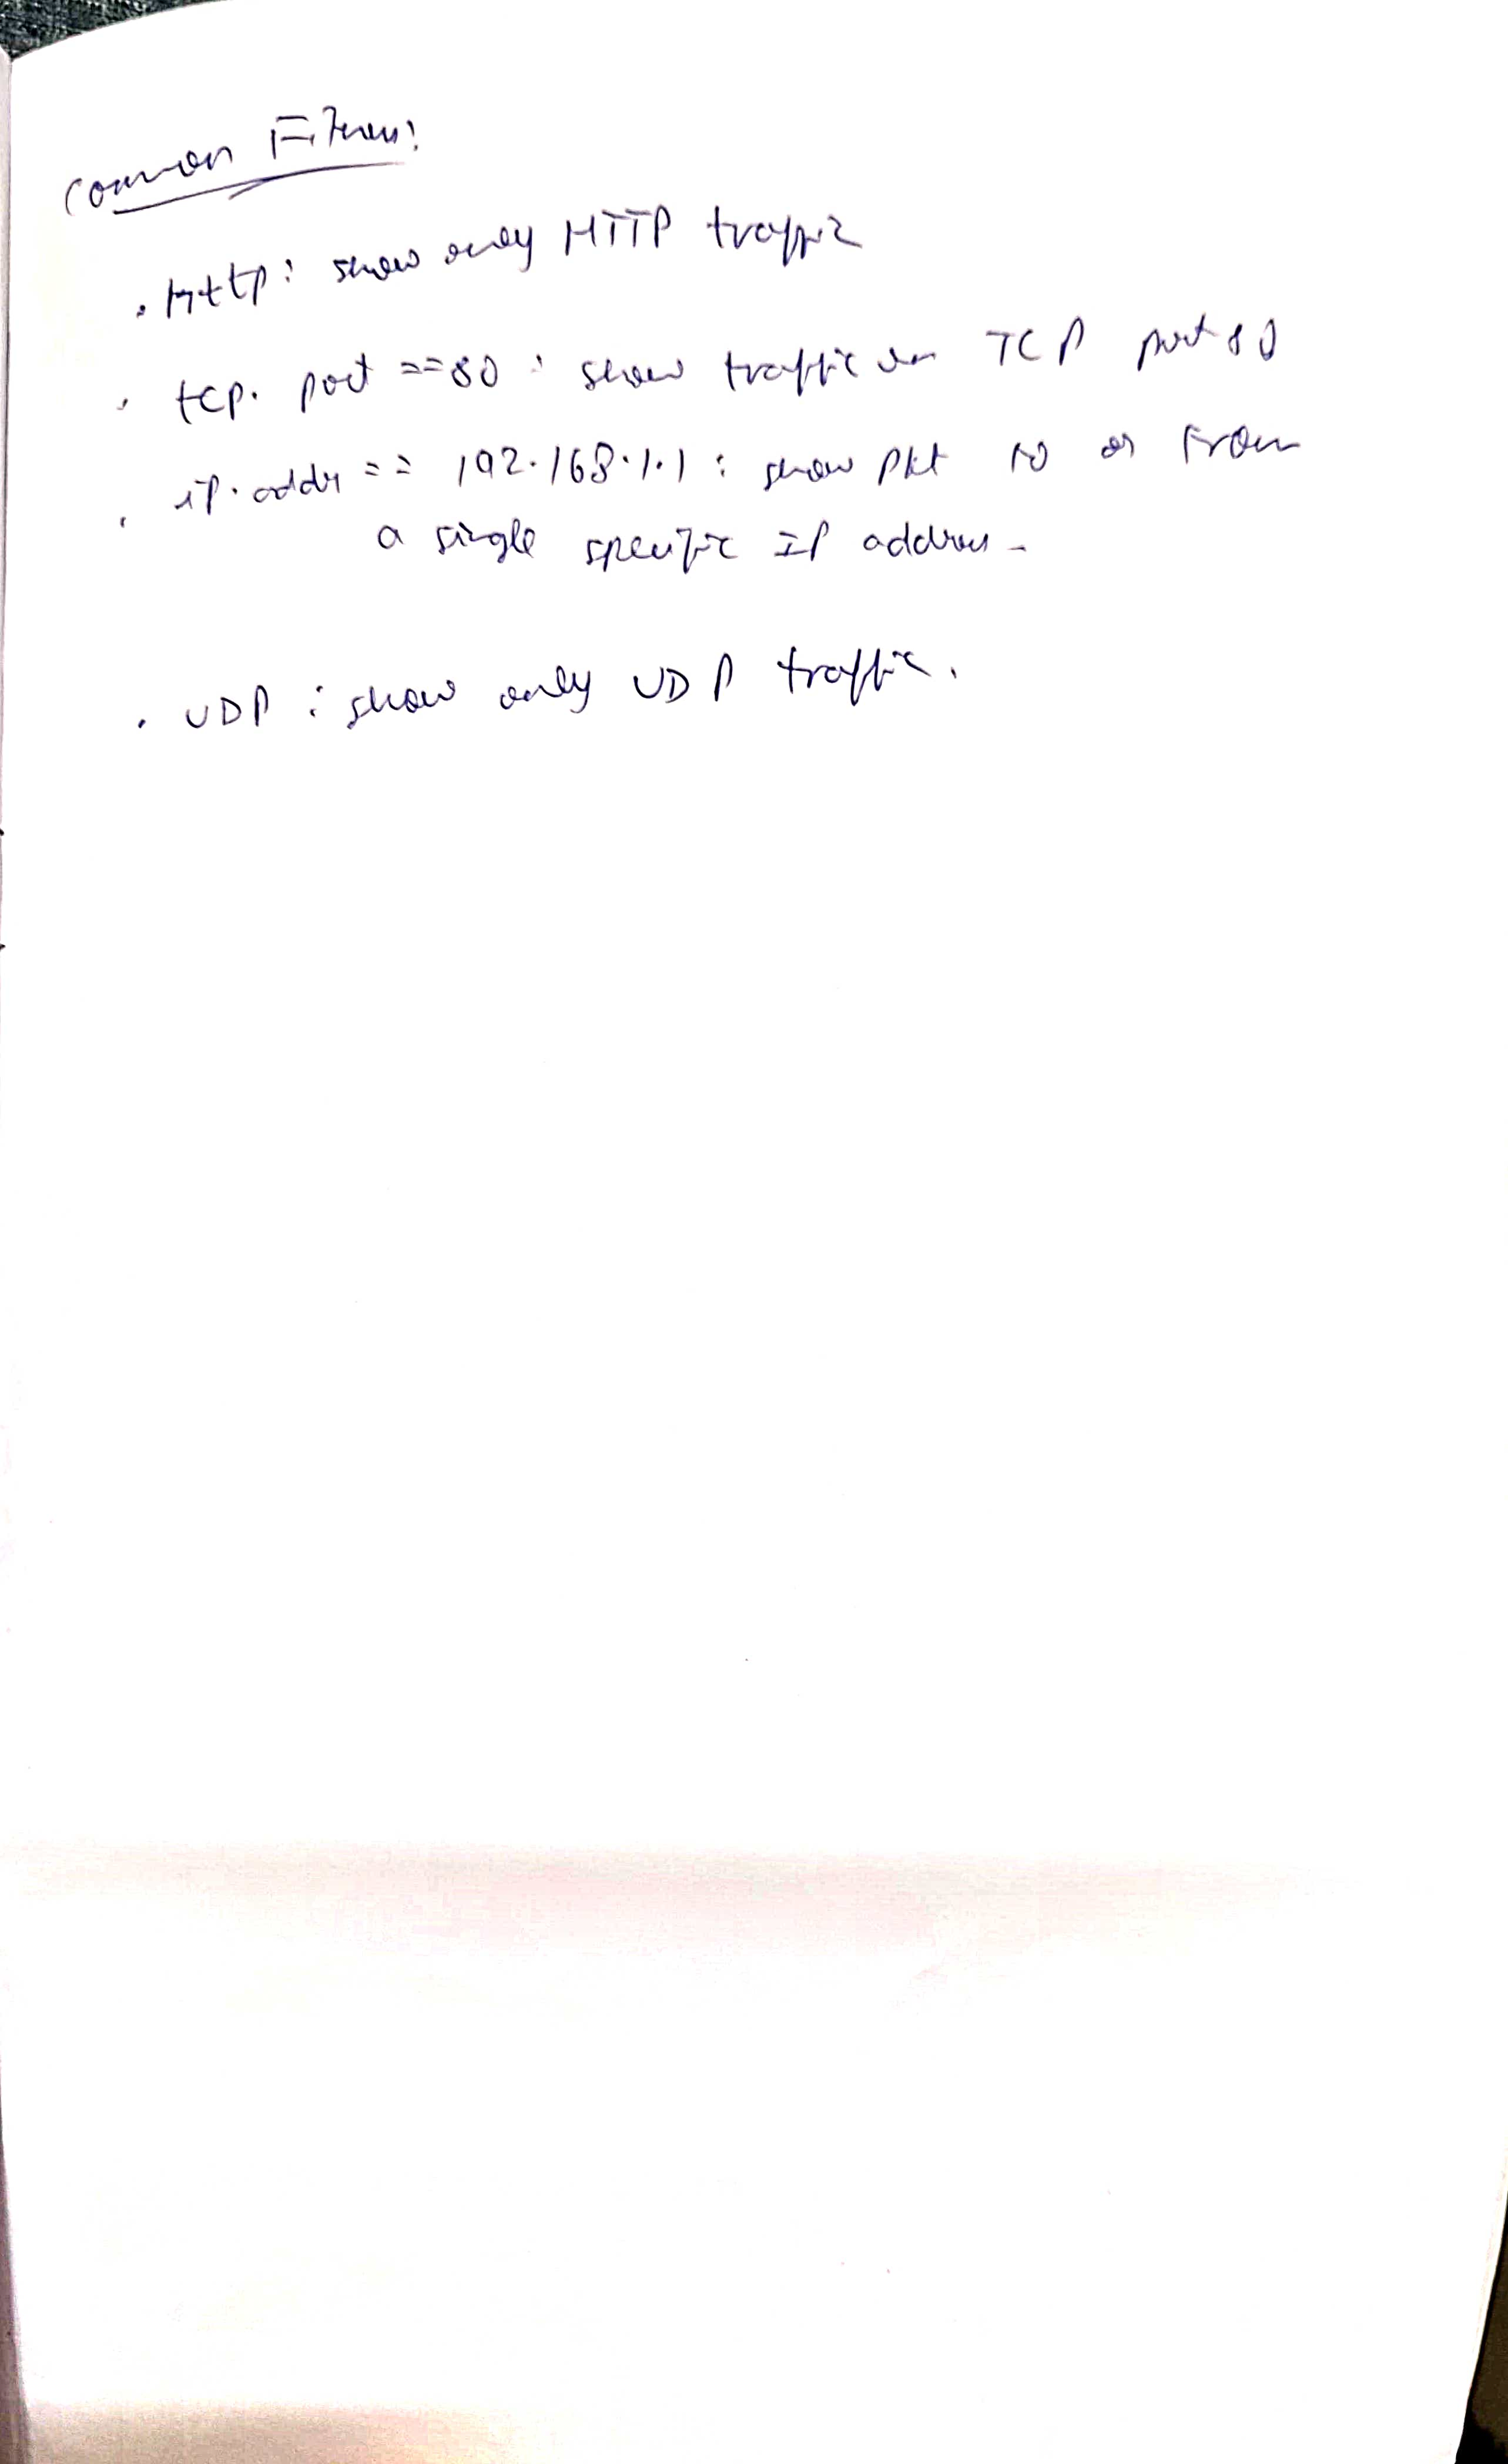 Common Filters:
. Http : show only HTTP traffic
. tcp. port ==80 : show traffic on TCP port 80
. ip. addr == 192.168.1.1 : show pkt to or from
a single specific IP address.
. UDP : show only UDP traffic.